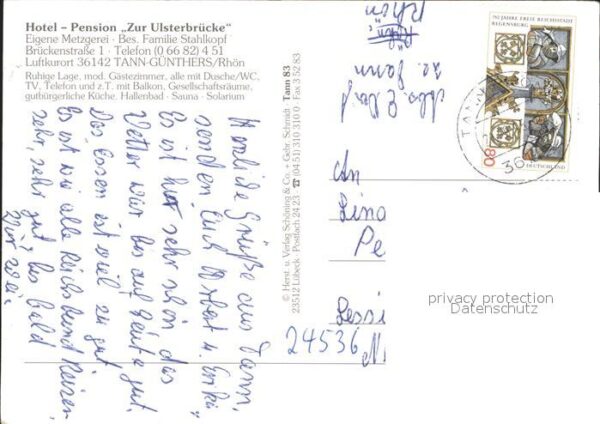 Hotel – Pension „Zur Ulsterbrücke“
Eigene Metzgerei · Bes. Familie Stahlkopf
Brückenstraße 1 · Telefon (0 66 82) 4 51
Luftkurort 36142 TANN-GÜNTHERS/Rhön
Ruhige Lage, mod. Gästezimmer, alle mit Dusche/WC,
TV, Telefon und z.T. mit Balkon, Gesellschaftsräume,
gutbürgerliche Küche. Hallenbad · Sauna · Solarium
Herzliche Grüße aus Tann,
senden Euch Norbert u. Erika
Es ist hier sehr schön das
Wetter war bis auf heute gut.
Das Essen ist viel zu gut
Es ist wie alle Reichsbund Reisen
sehr, sehr gut, bis bald
Wir zwei
© Herst. u. Verlag Schöning & Co. + Gebr. Schmidt · Tann 83
23512 Lübeck · Postfach 24 23 · ☎ (04 51) 310 310 0 · Fax 3 52 83
z. Tann
Rhön
750 JAHRE FREIE REICHSSTADT
REGENSBURG
80
DEUTSCHLAND
TANN
36
An
Pe
24536
privacy protection
Datenschutz